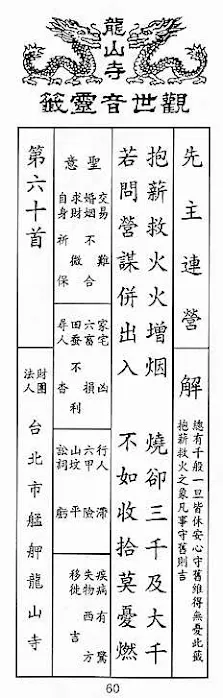 龍山寺
觀世音靈籤
先主連營
解
總有千般一旦皆休安心守舊維得無憂此籤
抱薪救火之象凡事守舊則吉
抱薪救火火增烟 燒卻三千及大千
若問營謀併出入 不如收拾莫憂燃
聖意
交易 難
婚姻 不合
求財 微
自身 祈保
家宅 凶
六畜 損
田蚕 不利
尋人 杳
行人 滯
六甲 險
山坟 平
訟詞 虧
疾病 有驚
失物 西方
移徙 吉
第六十首
財團法人 台北市艋舺龍山寺
60